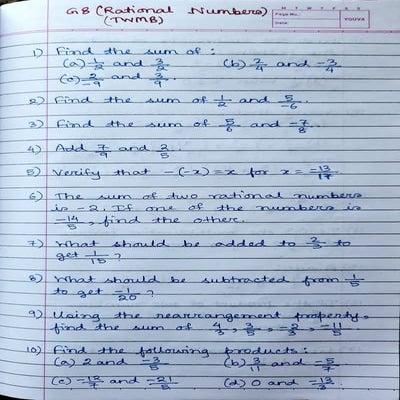 G8 (Rational Numbers)
(TWMB)
M T W T F S S
Page No.:
Date:
YOUVA
1) Find the sum of :
(a) 1/2 and 3/2 (b) 2/4 and -3/4
(c) 2/-9 and 3/9.
2) Find the sum of 1/2 and 5/-6.
3) Find the sum of 5/6 and -7/8.
4) Add 7/9 and 2/5.
5) Verify that -(-x) = x for x = -13/17
6) The sum of two rational numbers
is -2. If one of the numbers is
-14/5, find the other.
7) What should be added to 2/3 to
get 1/15 ?
8) What should be subtracted from 1/5
to get -1/20 ?
9) Using the rearrangement property,
find the sum of 4/3, 3/5, -2/3, -11/5
10) Find the following products :
(a) 2 and -3/5 (b) 3/11 and -5/7
(c) -12/7 and -21/5 (d) 0 and -13/3.